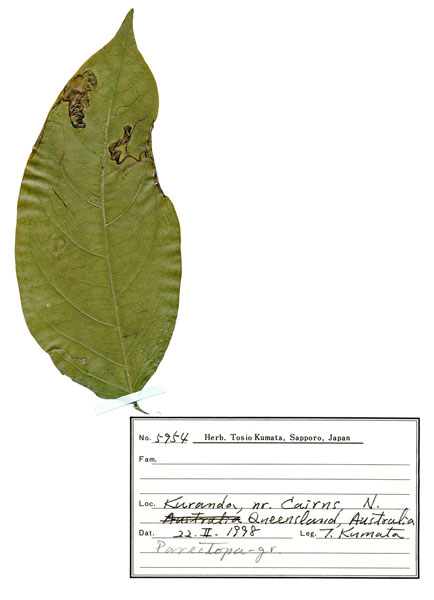 No. 5954 Herb. Tosio Kumata, Sapporo, Japan
Fam.
Loc. Kuranda, nr. Cairns, N.
Australia Queensland, Australia
Dat. 22. II. 1998 Leg. T. Kumata
Parectopa-gr.